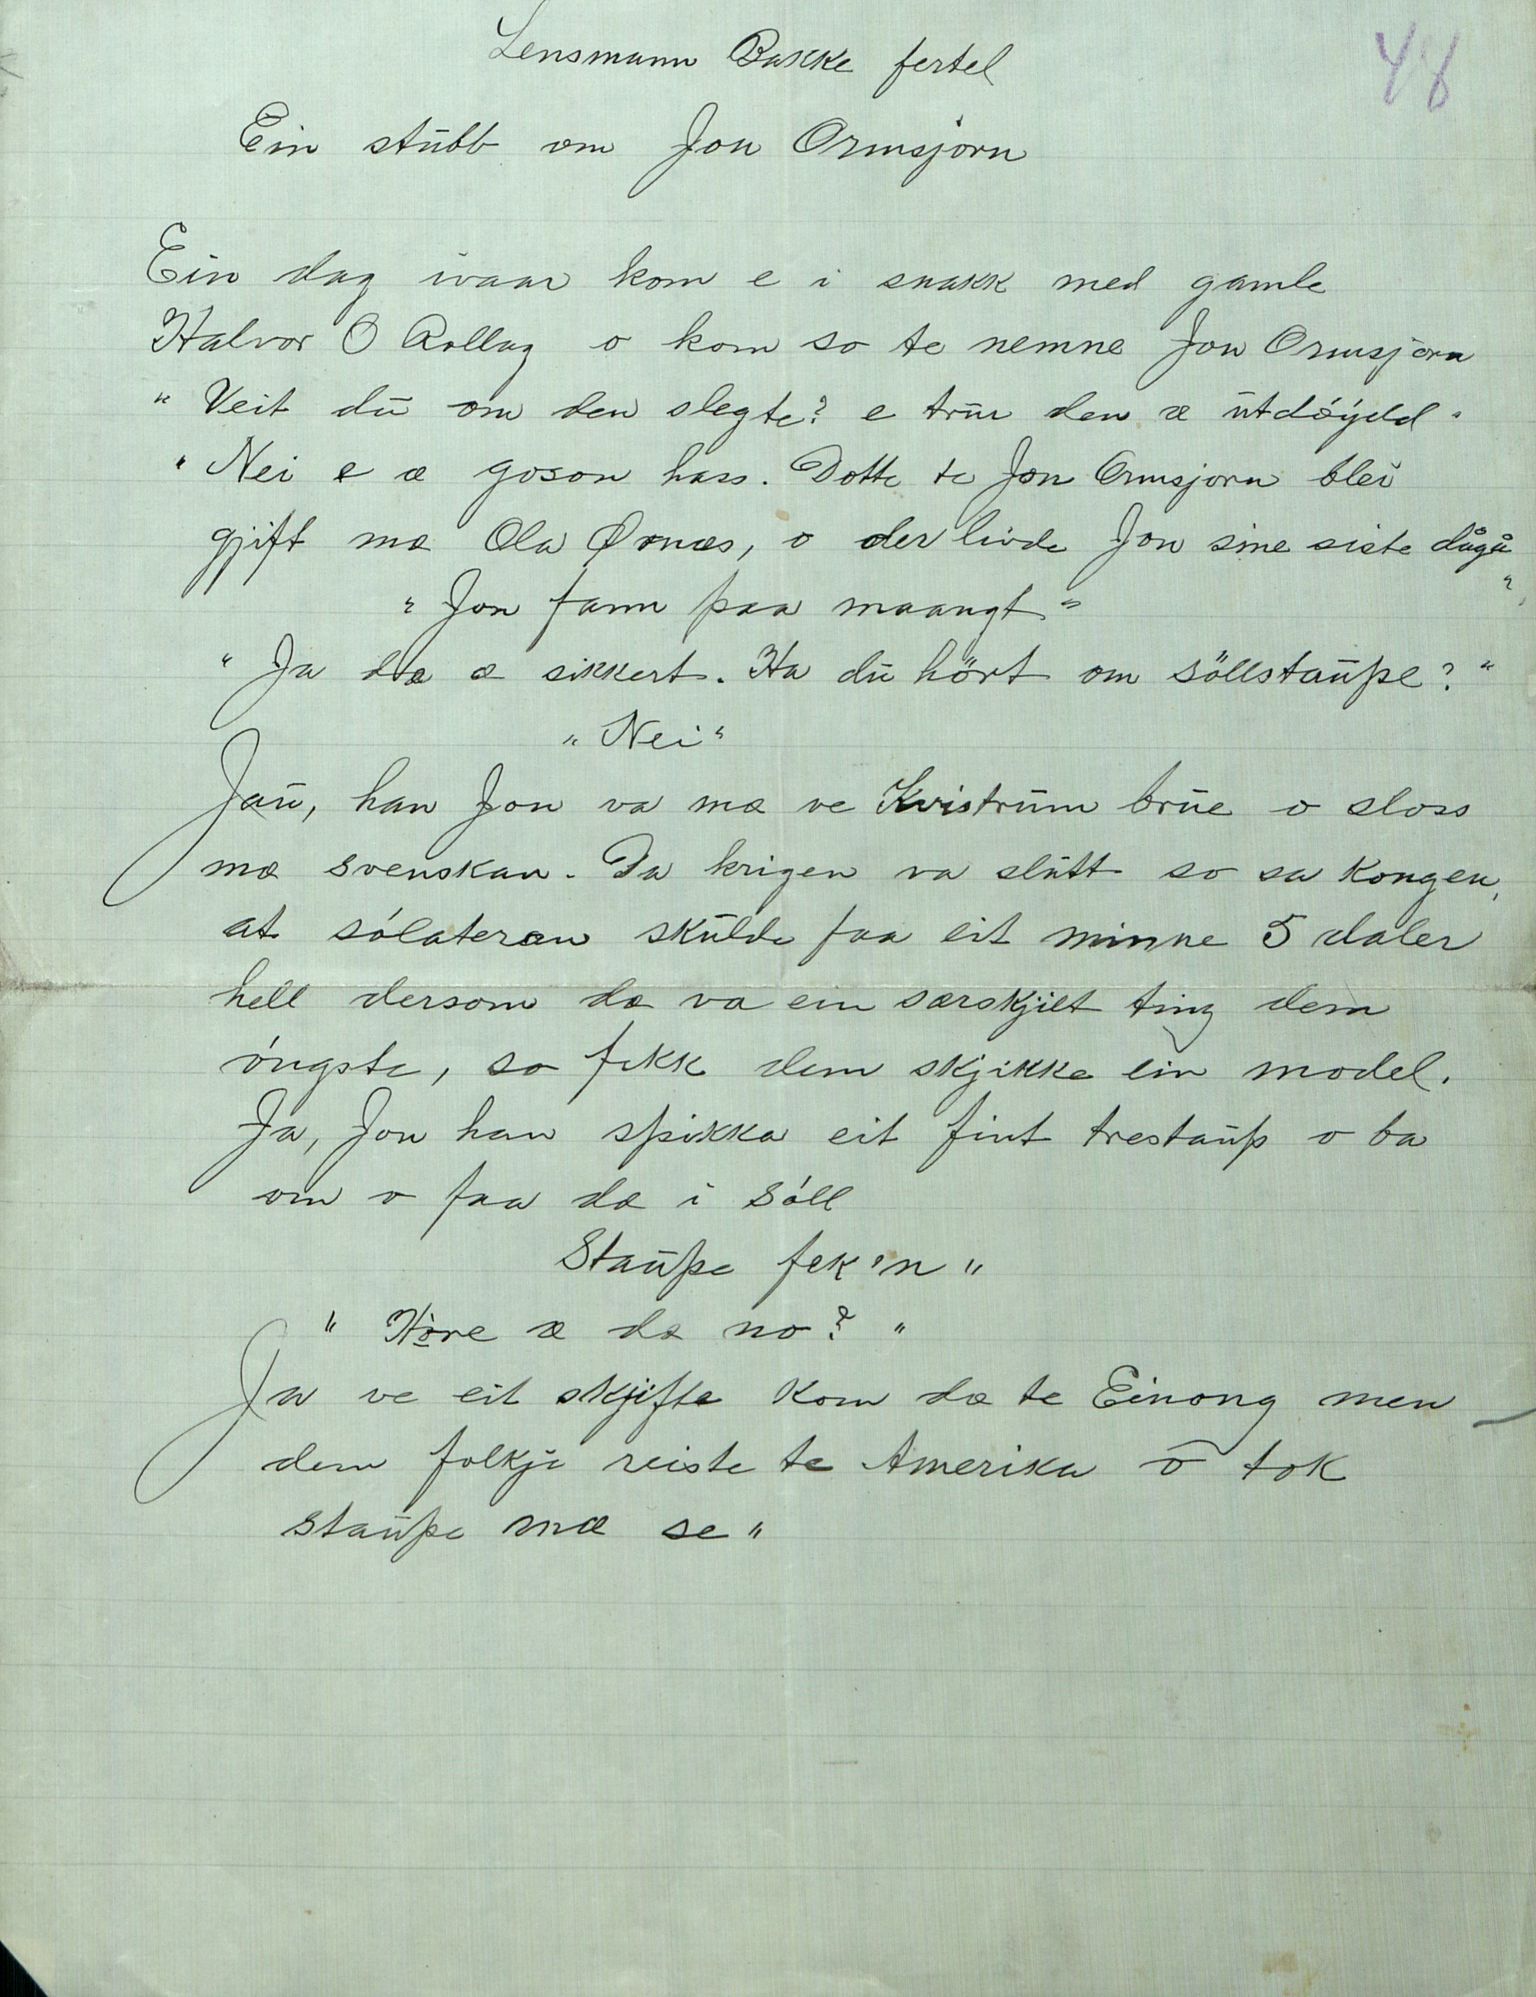 Lensmann Bakke fertel
48
Ein stubb om Jon Ormsjorn
Ein dag ivaar kom e i snakk med gamle
Halvor O Rollag o kom so te nemne Jon Ormsjorn
"Veit du om den slegte? e trur den æ utdöydd"
"Nei e æ goson hass. Dotte te Jon Ormsjorn blei
gjift mæ Ola Ørnæs, o der livde Jon sine siste dågå"
"Jon fann paa maangt"
"Ja dæ æ sikkert. Ha du hört om söllstaupe?"
"Nei"
Jau, han Jon va mæ ve Kvistrum brue o sloss
mæ svenskan. Da krigen va slutt so sa Kongen,
at sólateran skulde faa eit minne 5 daler
hell dersom dæ va ein særskjilt ting dem
óngste, so fekk dem skjikke ein model.
Ja, Jon han spikka eit fint trestaup o ba
om o faa dæ i Sóll
Staupe fek'n"
"Hòre æ dæ no?"
Ja ve eit skjifte kom dæ te Einong men
dem folkji reiste te Amerika o tok
staupe mæ se"